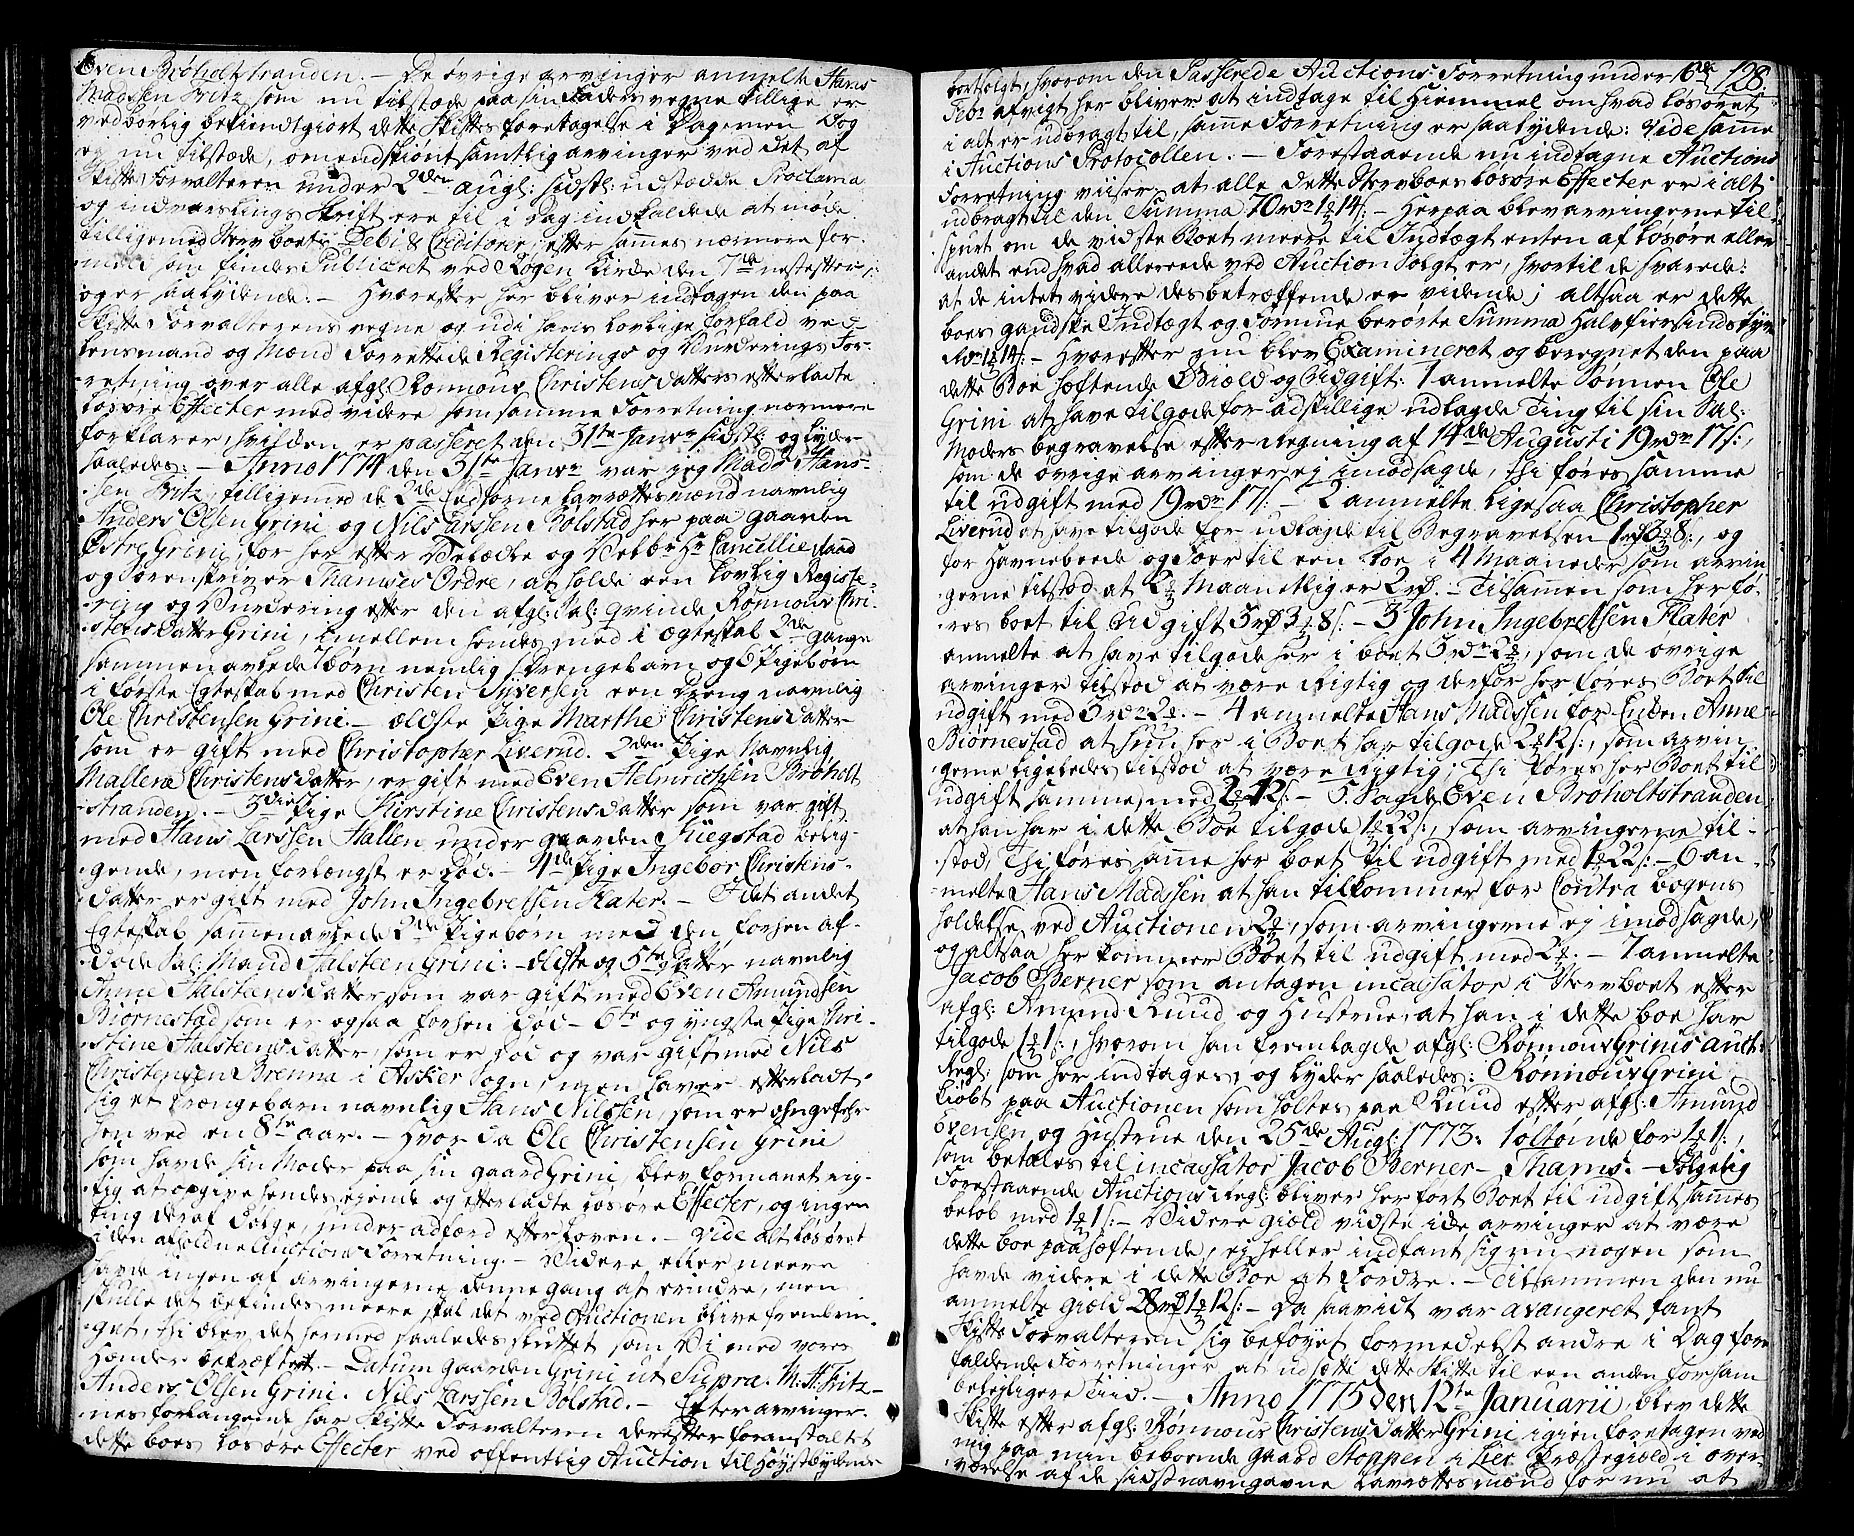 Even Brøholtstranden. – De øvrige arvinger anmelte Hans
Madssen Fritz som nu tilstæde paa sin Faders vegne tillige er
vedbørlig bekiendtgiort dette Skiftes foretagelse i Dag men Dog
ej nu tilstæde, omendskiønt samtlig arvinger ved det af
Skifte Forvalteren under 2den Augl: sidstl: udstædde Proclama
og indvarslings Skrift ere til i Dag indkaldede at møde
tilligemed Sterv boets Debit & Creditorer, efter sammes nærmere for-
meld som findes Publiceret ved Røgen Kirke den 7de nestefter,
og er saalydende. – Hvorefter her bliver indtagen den paa
Skifte Forvalterens vegne og udi hans lovlige forfald ved
Lensmand og Mænd Forrettede Registerings og Vurderings For-
retning over alle afgl: Rønnous Christensdatters efterladte
Løsøre Effecter med videre som samme Forretning nærmere
forklarer, hvilken er passeret den 31te Janr sidstl: og lyder
saaledes: – Anno 1774 den 31te Janr var jeg Mads Hans-
sen Fritz, tilligemed de 2de Eedsorne Lavrettesmænd navnlig
Anders Olsen Grini og Nils Larssen Bolstad her paa gaarden
Østre Grini, for her efter Velædle og Velbr Hr Cancellie Raad
og Sorenskriver Thamses Ordre, at holde een Lovlig Registe-
ring og Vurdering efter den afgl: Sal: qvinde Rønnous Chri-
stensdatter Grini, imellem hendes med i Ægteskab 2de gange
sammen avlede 7 børn nemlig 1 Drengebarn og 6 Pigebørn
i første Egteskab med Christen Syversen een Dreng navnlig
Ole Christensen Grini. – ældste Pige Marthe Christensdatter
som er gift med Christopher Liverud. 2den Pige Navnlig
Mallene Christensdatter, er gift med Even Helmrichsen Brøholt
stranden. – 3die Pige Kirstine Christensdatter som var gift
med Hans Larssen Hallen under gaarden Kiegstad belig-
gende, men forlængst er Død. – 4de Pige Ingebor Christens-
datter er gift med John Ingebretsen Flater. – I det andet
Egteskab sammenavlede 2de Pigebørn med den forhen af-
døde Sal: Mand Halsteen Grini: – ældste og 5te Datter navnlig
Anne Halsteensdatter, som var gift med Even Amundsen
Biørnestad som er ogsaa forhen død – 6te og yngste Pige Kiri-
stine Halsteensdatter, som er Død og var gift med Nils
Christensen Brenna i Asker Sogn, men haver efterladt
sig et Drengebarn navnlig Hans Nilssen, som er ohngefehr
hen ved en 8te aar. – Hvor da Ole Christensen Grini
som havde sin Moder paa sin gaard Grini, blev formanet rig-
tig at opgive hendes ejende og efterladte Løsøre Effecter, og ingen
ting deraf Dølge, under adfærd efter Loven. – Vide alt Løsøret
i den afholdne Auctions Forretning. – Videre eller meere
havde ingen af arvingerne denne gang at erindre, men
skulle det befindes meere skal det ved Auctionen blive frembrin-
get, thi blev det hermed saaledes sluttet som Vi med vores
Hænder bekræfter. – Datum gaarden Grini ut Supra. M: H: Fritz –
Anders Olsen Grini. Nils Larssen Bolstad. – Efter arvinger-
nes forlangende har Skifte Forvalteren derefter foranstaltet
dette boes Løsøre Effecter ved offentlig Auction til Høystbydende
128.
bortsolgt, hvorom den Passerede Auctions Forretning under 16de
Febr afvigt her bliver at indtage til Hiemmel om hvad Løsøret
i alt er udbragt til, samme Forretning er saalydende: Vide samme
i Auctions Protocollen. – Forestaaende nu indtagne Auctions
Forretning viiser at alle dette Sterv boes Løsøre Effecter er i alt
udbragt til den Summa 70 rdr 1 ort 14 s: – Herpaa blev arvingerne til-
spurt om de vidste Boet meere til Indtægt enten af Løsøre eller
andet end hvad allereede ved Auction Solgt er, hvortil de svarede:
at de intet videre desbetræffende er vidende; altsaa er dette
boes gandske Indtægt og Formue berørte Summa Halvfierdsindstyve
Rdr 1 ort 14 s: – Hvorefter nu blev Examineret og beregnet den paa
dette Boe hæftende Giæld og Udgift: 1 anmelte Sønnen Ole
Grini at have tilgode for adskillige udlagde Ting til sin Sal:
Moders begravelse efter Regning af 14de Augusti 19 rdr 17 s:,
som de øvrige arvinger ej imodsagde, thi føres samme
til udgift med 19 rdr 17 s. – 2 anmelte Ligesaa Christopher
Liverud at have tilgode for udlagde til Begravelsen 1 rd 3 ort 8 s:, og
for Havnebeede og Foer til een Koe i 4 Maaneder som arvin
gerne tilstod at 2 ort Maanetlig er 2 rd. – Tilsamen som her fø-
res boet til Udgift 3 rd 3 ort 8 s: – 3 John Ingebretsen Flater
anmelte at have tilgode her i boet 3 rdr 2 ort, som de øvrige
arvinger tilstod at være Rigtig og derfor her føres Boet til
udgift med 3 rdr 2 ort. – 4 anmelte Hans Madssen for Enken Anne
Biørnestad at hun her i Boet har tilgode 2 ort 12 s:, som arvin
gerne ligeledes tilstod at være Rigtig; Thi føres her Boet til
udgift samme med 2 ort 12 s: – 5. Sagde Even Brøholtstranden,
at han har i dette Boe tilgode 1 ort 22 s:, som arvingerne til-
stod, Thi føres same her boet til udgift med 1 ort 22 s: – 6 an-
melte Hans Madssen at han tilkommer for Contra bogens
holdelse ved Auctionen 2 ort, som arvingerne ej imodsagde,
og altsaa her kommer Boet til udgift med 2 ort. – 7 anmelte
Jacob Berner som antagen incassator i Stervboet efter
afgl: Amund Ruud og Hustrue, at han i dette boe har
tilgode 1 ort 1 s:, hvorom han fremlagde afgl: Rønnous Grinis Auct:
Regl: som her indtages, og Lyder saaledes: Rønnous Grini
kiøbt paa Auctionen som holtes paa Ruud efter afgl: Amund
Evensen og Hustrue den 25de Augl: 1773: 1 øltønde for 1 ort 1 s:,
som betales til incassator Jacob Berner – Thams. – Følgelig
Forestaaende Auctions Regl: bliver her ført Boet til udgift sames
beløb med 1 ort 1 s: – Videre giæld vidste icke arvinger at være
dette boe paahæftende, ej heller indfant sig nu nogen som
havde videre i dette Boe at Fordre. – Tilsammen den nu
anmelte giæld 28 rd 1 ort 12 s: – Da saavidt var avangeret fant
Skifte Forvalteren sig beføyet formedelst andre i Dag fore
faldende Forretninger at udsette dette Skifte til een anden forsam
beleyligere Tiid. – Anno 1775 den 12te Januarii, blev dette
Skifte efter afgl: Rønnous Christensdatter Grini igien foretagen ved
mig paa min beboende gaard Stoppen i Lier Præstegiæld i over
værelse af de sidst navngavne Lavrettesmænd for nu at